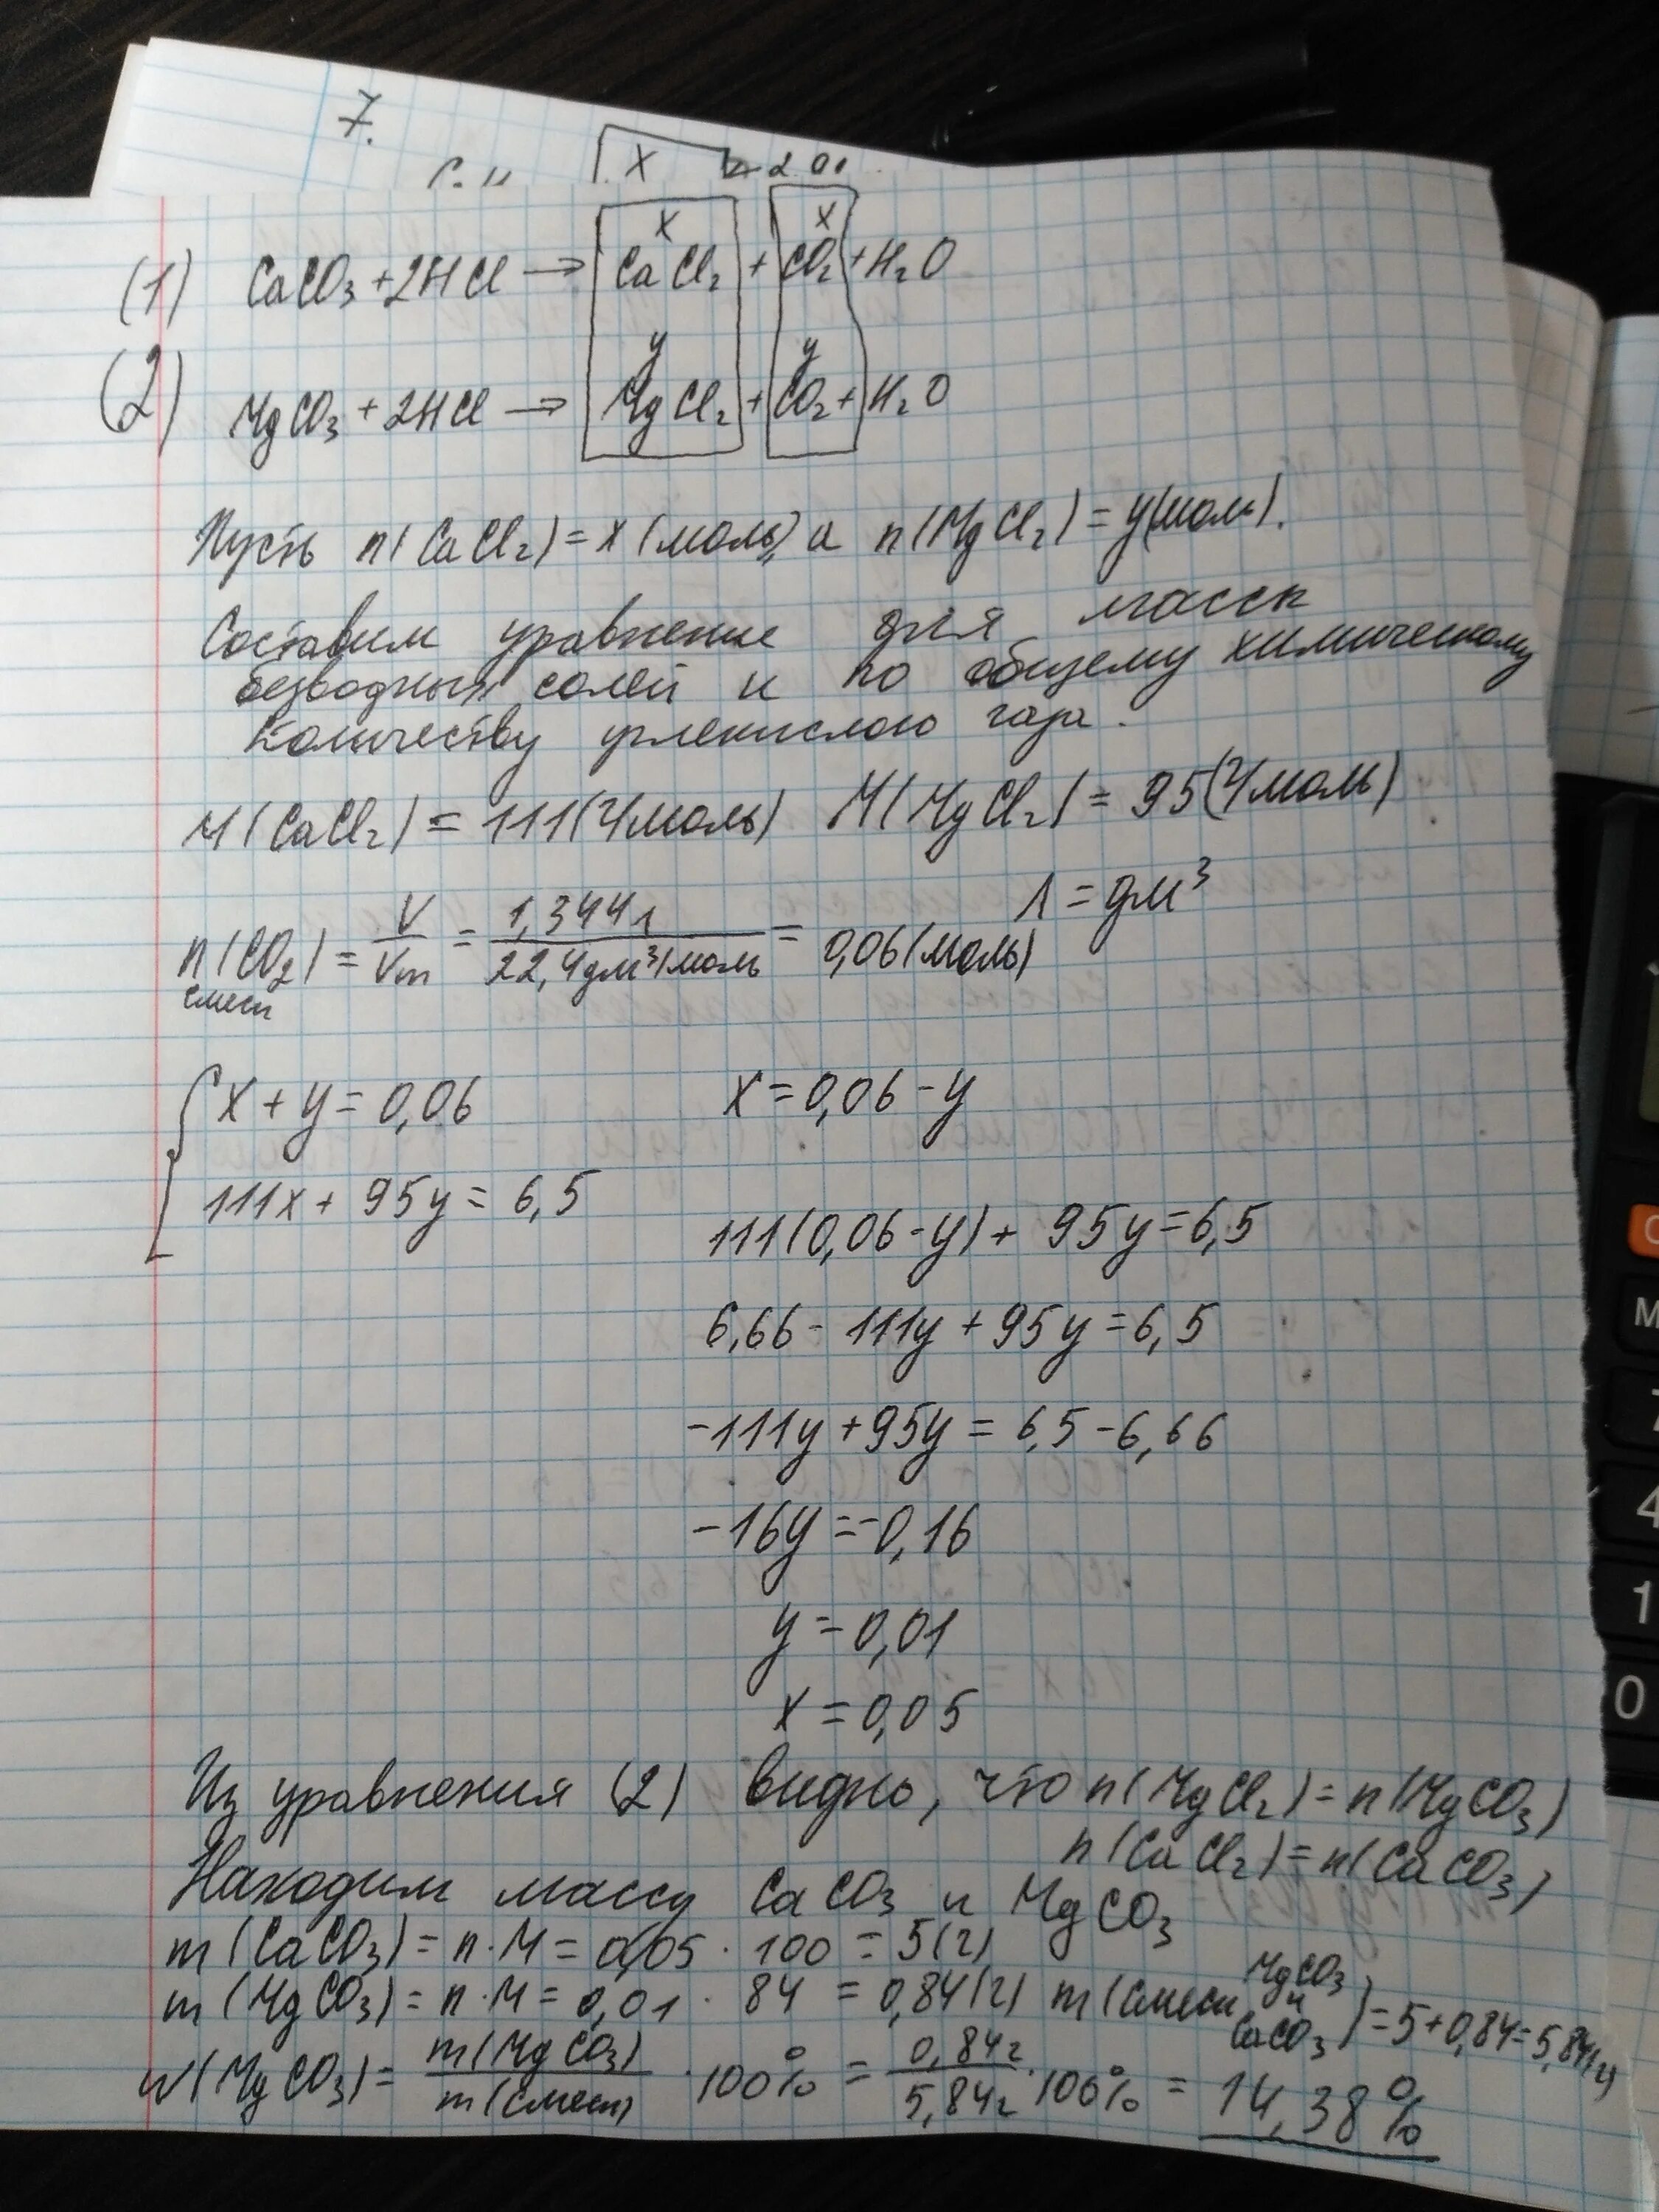 7.
X
(1) CaCO₃ + 2HCl → CaCl₂ + CO₂ + H₂O
x x
(2) MgCO₃ + 2HCl → MgCl₂ + CO₂ + H₂O
y y
Пусть n(CaCl₂) = x (моль), а n(MgCl₂) = y (моль).
Составим уравнение для массы
безводных солей и по общему химическому
количеству углекислого газа.
M(CaCl₂) = 111 (г/моль) M(MgCl₂) = 95 (г/моль)
л = дм³
n(CO₂) = V/Vm = 1,344л / 22,4дм³/моль = 0,06 (моль)
смеси
x + y = 0,06 x = 0,06 - y
111x + 95y = 6,5
111(0,06 - y) + 95y = 6,5
6,66 - 111y + 95y = 6,5
-111y + 95y = 6,5 - 6,66
-16y = -0,16
y = 0,01
x = 0,05
Из уравнения (2) видно, что n(MgCl₂) = n(MgCO₃)
n(CaCl₂) = n(CaCO₃)
Находим массу CaCO₃ и MgCO₃
m(CaCO₃) = n·M = 0,05 · 100 = 5(г)
m(MgCO₃) = n·M = 0,01 · 84 = 0,84(г) m(смеси MgCO₃ и CaCO₃) = 5 + 0,84 = 5,84(г)
w(MgCO₃) = m(MgCO₃)/m(смеси) · 100% = 0,84г/5,84г · 100% = 14,38%
M
7
4
1
0